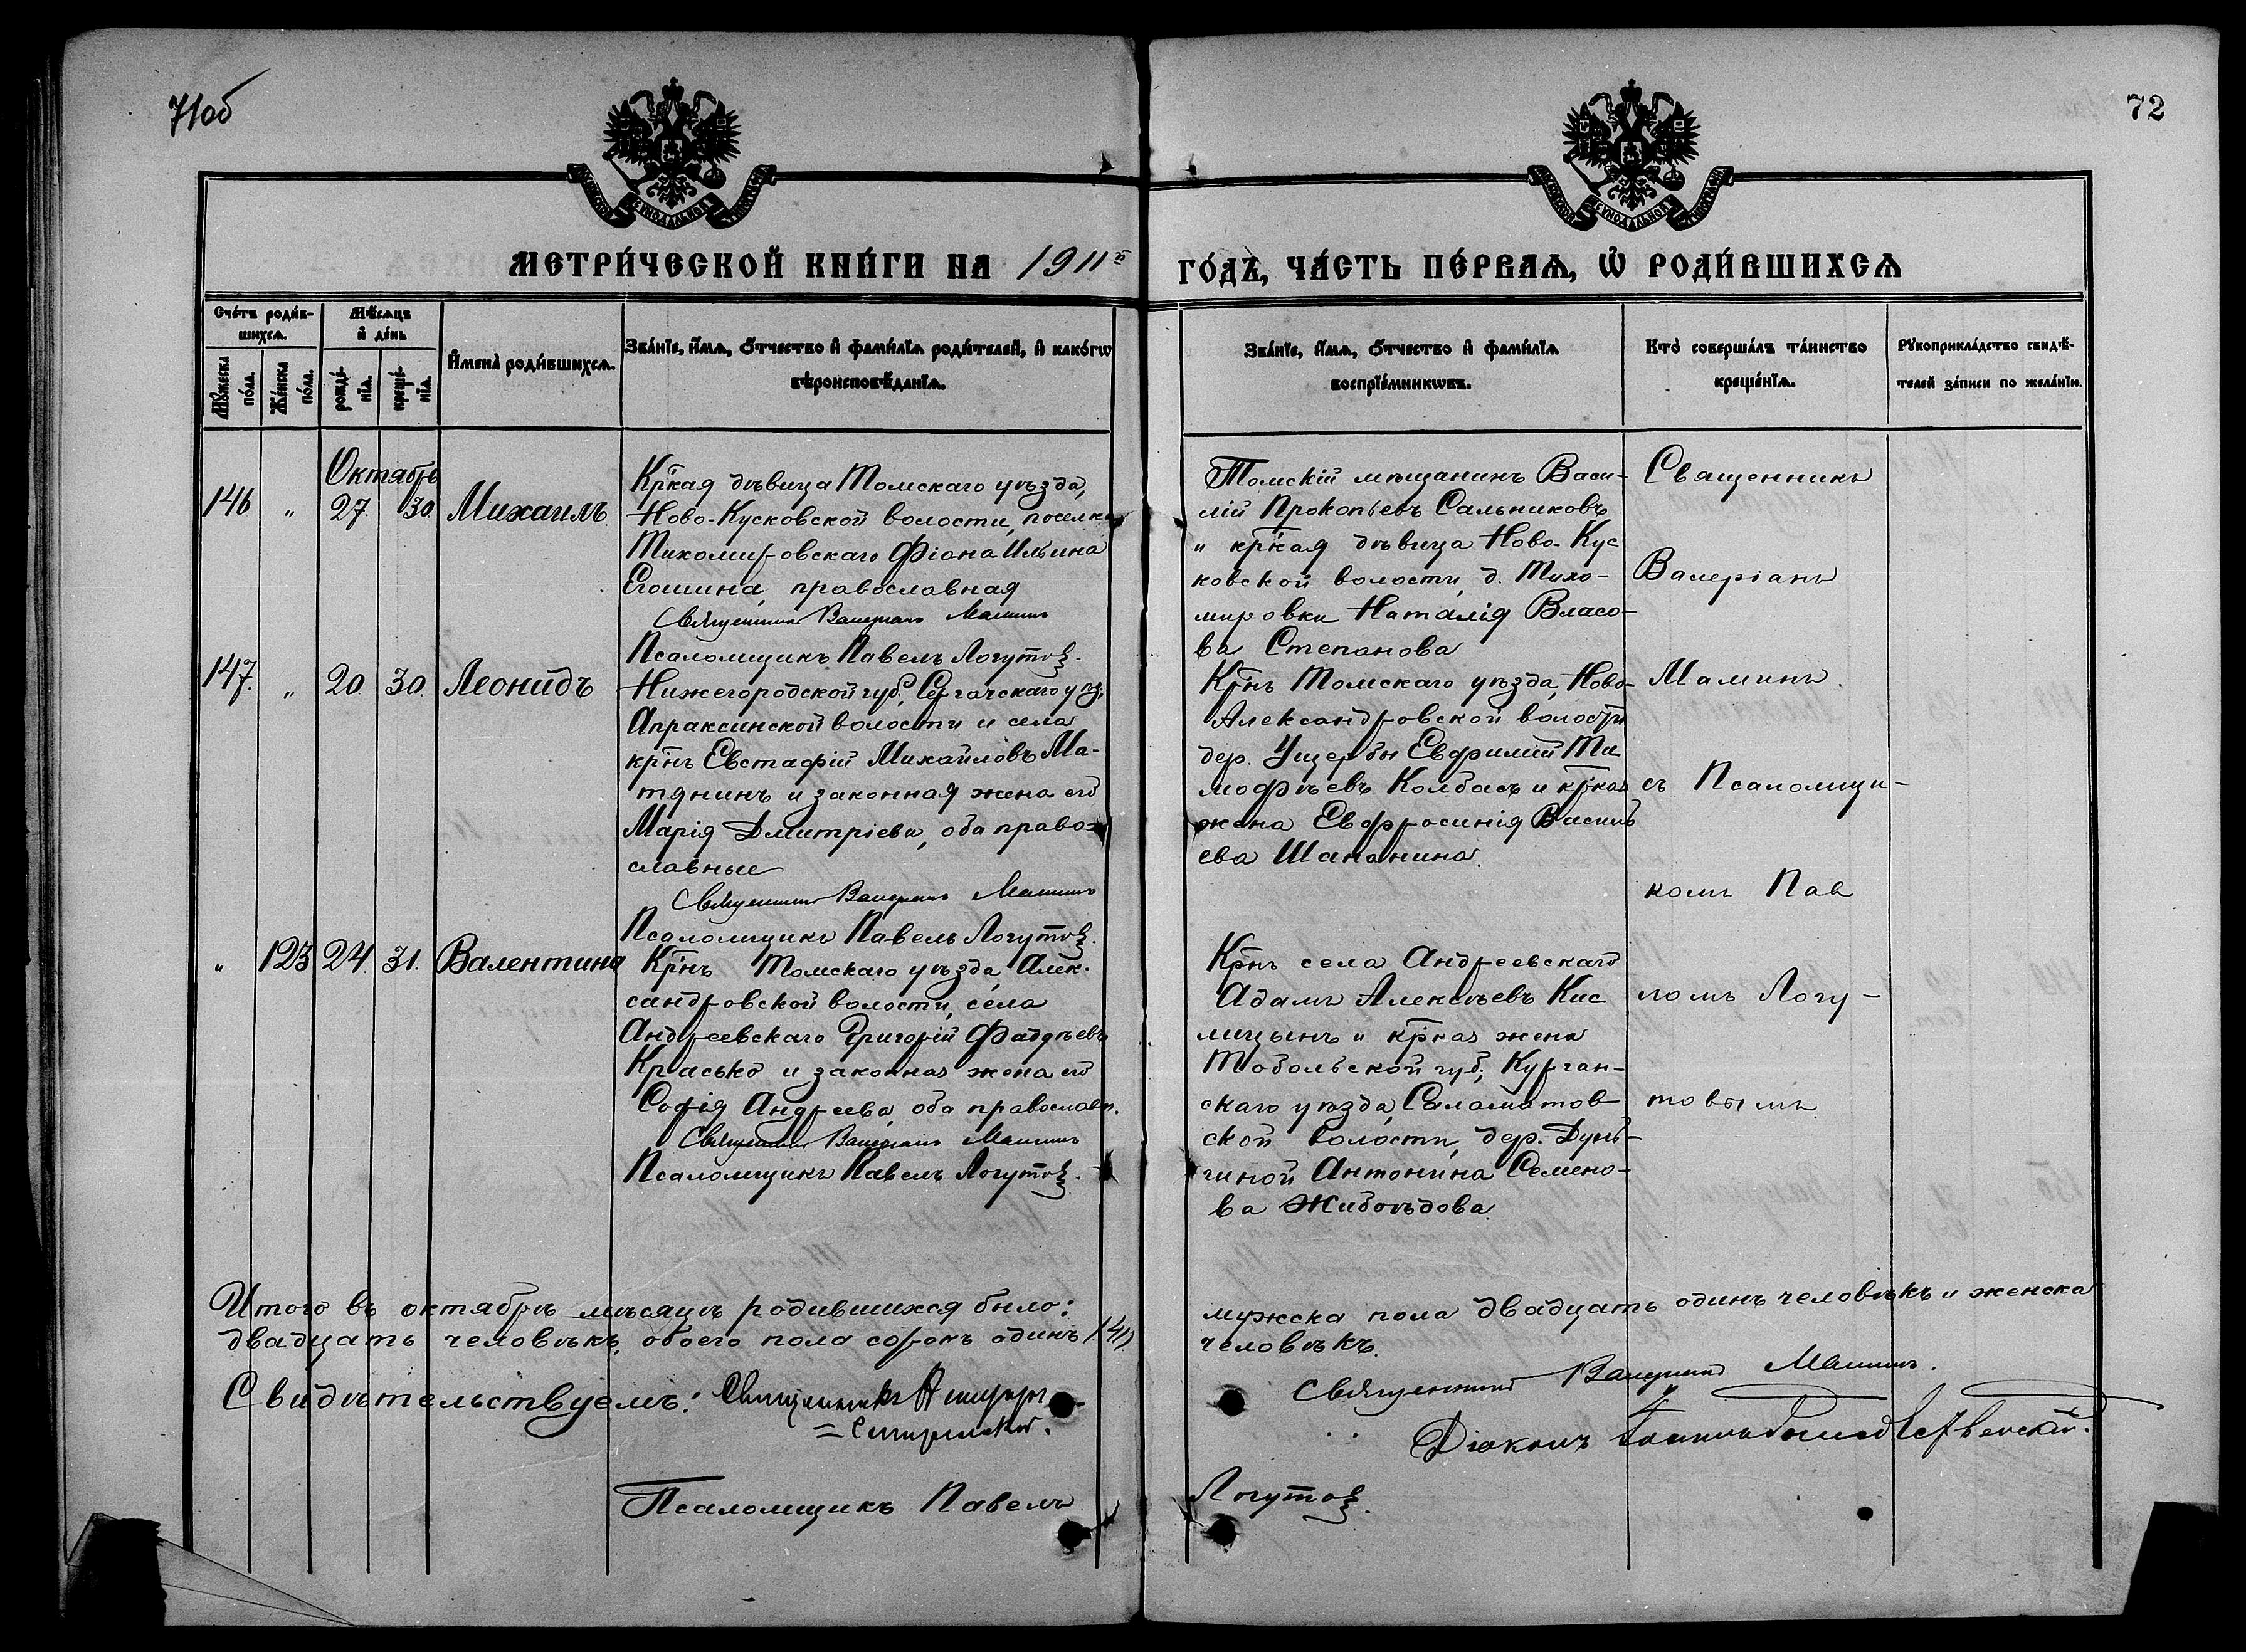 71об
72
МЕТРИ́ЧЕСКОЙ КНИ́ГИ НА 1911й
ГО́ДЪ, ЧА́СТЬ ПЕ́РВАѦ, Ѡ҆ РОДИ́ВШИХСѦ
Сче́тъ роди́в-
шихсѧ.
Мѣ́сѧцъ
и҆ де́нь
Му́жеска по́ла.
Же́нска по́ла.
рожде́-нїѧ.
креще́-нїѧ.
И҆мена̀ роди́вшихсѧ.
Зва́нїе, и҆́мѧ, ѻ҆́тчество и҆ фами́лїѧ роди́телей, и҆ како́гѡ
вѣроисповѣ́данїѧ.
Зва́нїе, и҆́мѧ, ѻ҆́тчество и҆ фами́лїѧ
воспрїе́мникѡвъ.
Кто̀ соверша́лъ та́инство
креще́нїѧ.
Рꙋкоприкла́дство свидѣ́-
телей за́писи по жела́нїю.
Октябрь
146 " 27. 30. Михаилъ
Кр̃кая дѣвица Томскаго уѣзда,
Ново-Кусковской волости, поселка
Тихомировскаго Фіона Ильина
Егошина, православная
Священникъ Валеріанъ Маминъ
Псаломщикъ Павелъ Логутов.
Томскій мѣщанинъ Васи-
лій Прокопьевъ Сальниковъ
и кр̃кая дѣвица Ново-Кус
ковской волости, д. Тихо-
мировки Наталія Власо-
ва Степанова
147. " 20. 30. Леонидъ
Нижегородской губ., Сергачскаго уѣз.
Апраксинской волости и села
кр̃нъ Евстафій Михайловъ Ма-
тянинъ и законная жена его
Марія Дмитріева, оба право-
славные
Священникъ Валеріанъ Маминъ
Псаломщикъ Павелъ Логутов.
Кр̃нъ Томскаго уѣзда, Ново-
Александровской волости
дер. Ущербы Евфимій Ти
мофѣевъ Колбасъ и кр̃кая
жена Евфросинія Василь
ева Шапанина.
" 123 24. 31. Валентина
Кр̃нъ Томскаго уѣзда, Алек-
сандровской волости, села
Андреевскаго Григорій Фаддѣевъ
Красько и законная жена его
Софія Андреева, оба православн.
Священникъ Валеріанъ Маминъ
Псаломщикъ Павелъ Логутов.
Кр̃нъ села Андреевскаго
Адамъ Алексѣевъ Кис
лицынъ и кр̃кая жена
Тобольской губ., Курган-
скаго уѣзда, Саламатов
ской волости, дер.
Антонина Семено-
ва
Священникъ
Валеріанъ
Маминъ
съ Псаломщи-
комъ Пав
ломъ Логу-
товымъ.
Итого въ октябрѣ мѣсяцѣ родившихся было:
мужска пола двадцать одинъ человѣкъ и женска
двадцать человѣкъ, обоего пола сорокъ одинъ (41)
человѣкъ.
Свидѣтельствуемъ: Священникъ
Священникъ Валеріанъ Маминъ.
Діаконъ
Псаломщикъ Павелъ
Логутов.